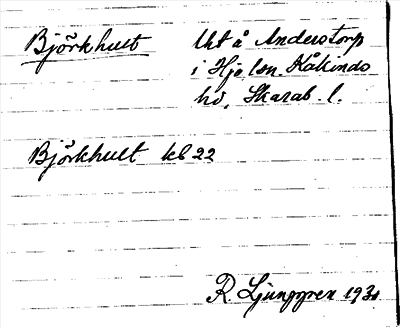 Björkhult
Uht å Anderstorp
i Hjo lsn. Kåkinds
hd, Skarab. l.
Björkhult kb 22
R. Ljunggren 1931